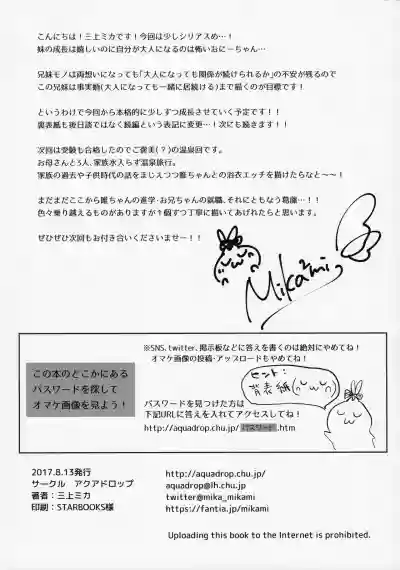 こんにちは!三上ミカです!今回は少しシリアスめ…!
妹の成長は嬉しいのに自分が大人になるのは怖いおにーちゃん…
兄妹モノは両想いになっても「大人になっても関係が続けられるか」の不安が残るので
この兄妹は事実婚(大人になっても一緒に居続ける)まで描くのが目標です!
というわけで今回から本格的に少しずつ成長させていく予定です!!
裏表紙も後日談ではなく続編という表記に変更…!次にも続きます!!
次回は受験も合格したのでご褒美(?)の温泉回です。
お母さんと3人、家族水入らず温泉旅行。
家族の過去や子供時代の話をまじえつつ雛ちゃんとの浴衣エッチを描けたらなと〜〜!
まだまだここから雛ちゃんの進学・お兄ちゃんの就職、それにともなう葛藤…!!
色々乗り越えるものがありますが1個ずつ丁寧に描いてあげれたらと思います。
ぜひぜひ次回もお付き合いくださいませー!!
Mikami
この本のどこかにある
パスワードを探して
オマケ画像を見よう!
※SNS、twitter、掲示板などに答えを書くのは絶対にやめてね!
オマケ画像の投稿・アップロードもやめてね!
ヒント:
背表紙
パスワードを見つけた方は
下記URLに答えを入れてアクセスしてね!
http://aquadrop.chu.jp/パスワード.htm
2017.8.13発行
サークル アクアドロップ
著者:三上ミカ
印刷:STARBOOKS様
http://aquadrop.chu.jp/
aquadrop@lh.chu.jp
twitter@mika_mikami
https://fantia.jp/mikami
Uploading this book to the Internet is prohibited.